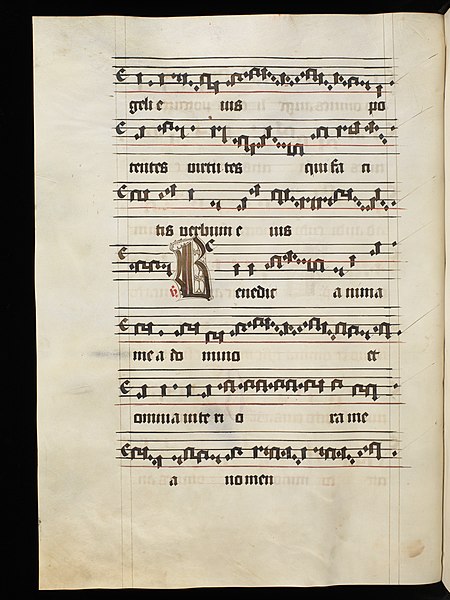 geli e ius po
tentes uirtutes qui fa ci
tis verbum e ius
Benedic anima
mea domino et
omnia interiora me
a nomen